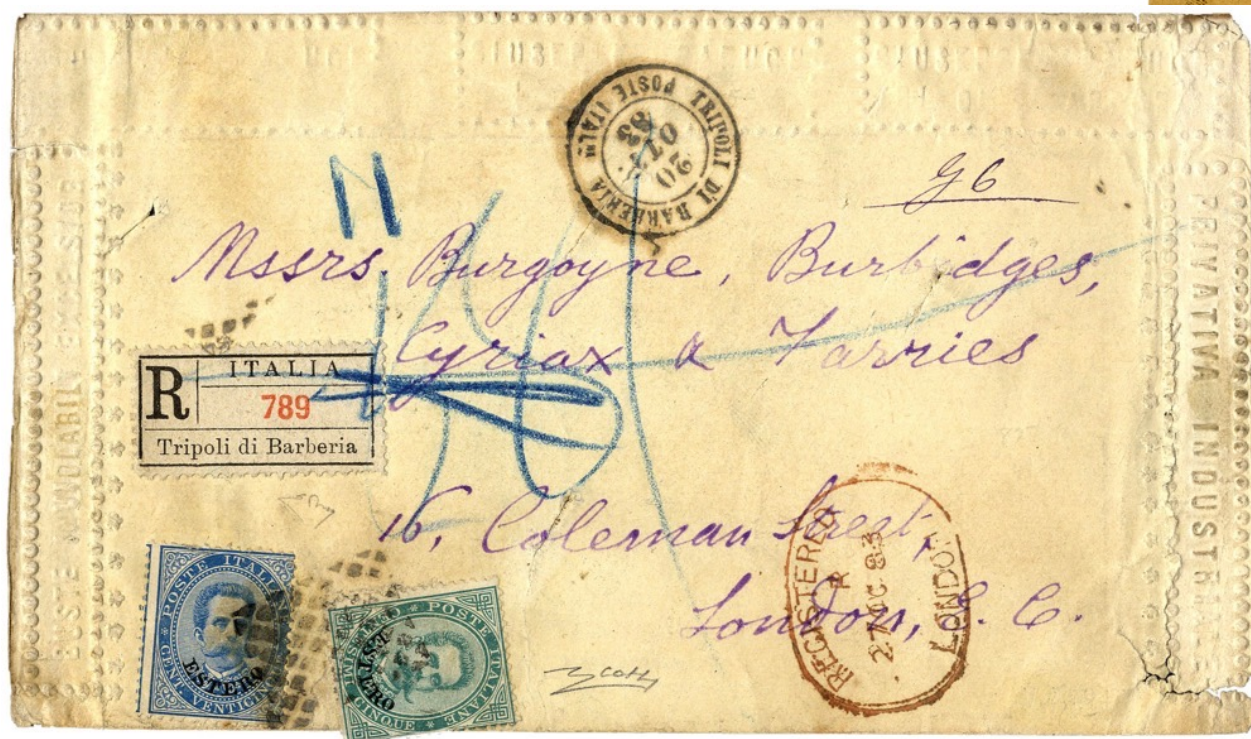 TRIPOLI DI BARBERIA
POSTE ITALne
20
OTT
83
G6
Mssrs Burgoyne, Burbidges,
Cyriax & Farries
R
ITALIA
789
Tripoli di Barberia
16, Coleman Street,
London, E. C.
REGISTERED
R
27 OC 83
LONDON
POSTE ITALIANE
CENT. VENTICIN
ESTERO
POSTE ITALIANE
CINQUE
ESTERO
PRIVATIVA INDUSTRIALE
BUSTE